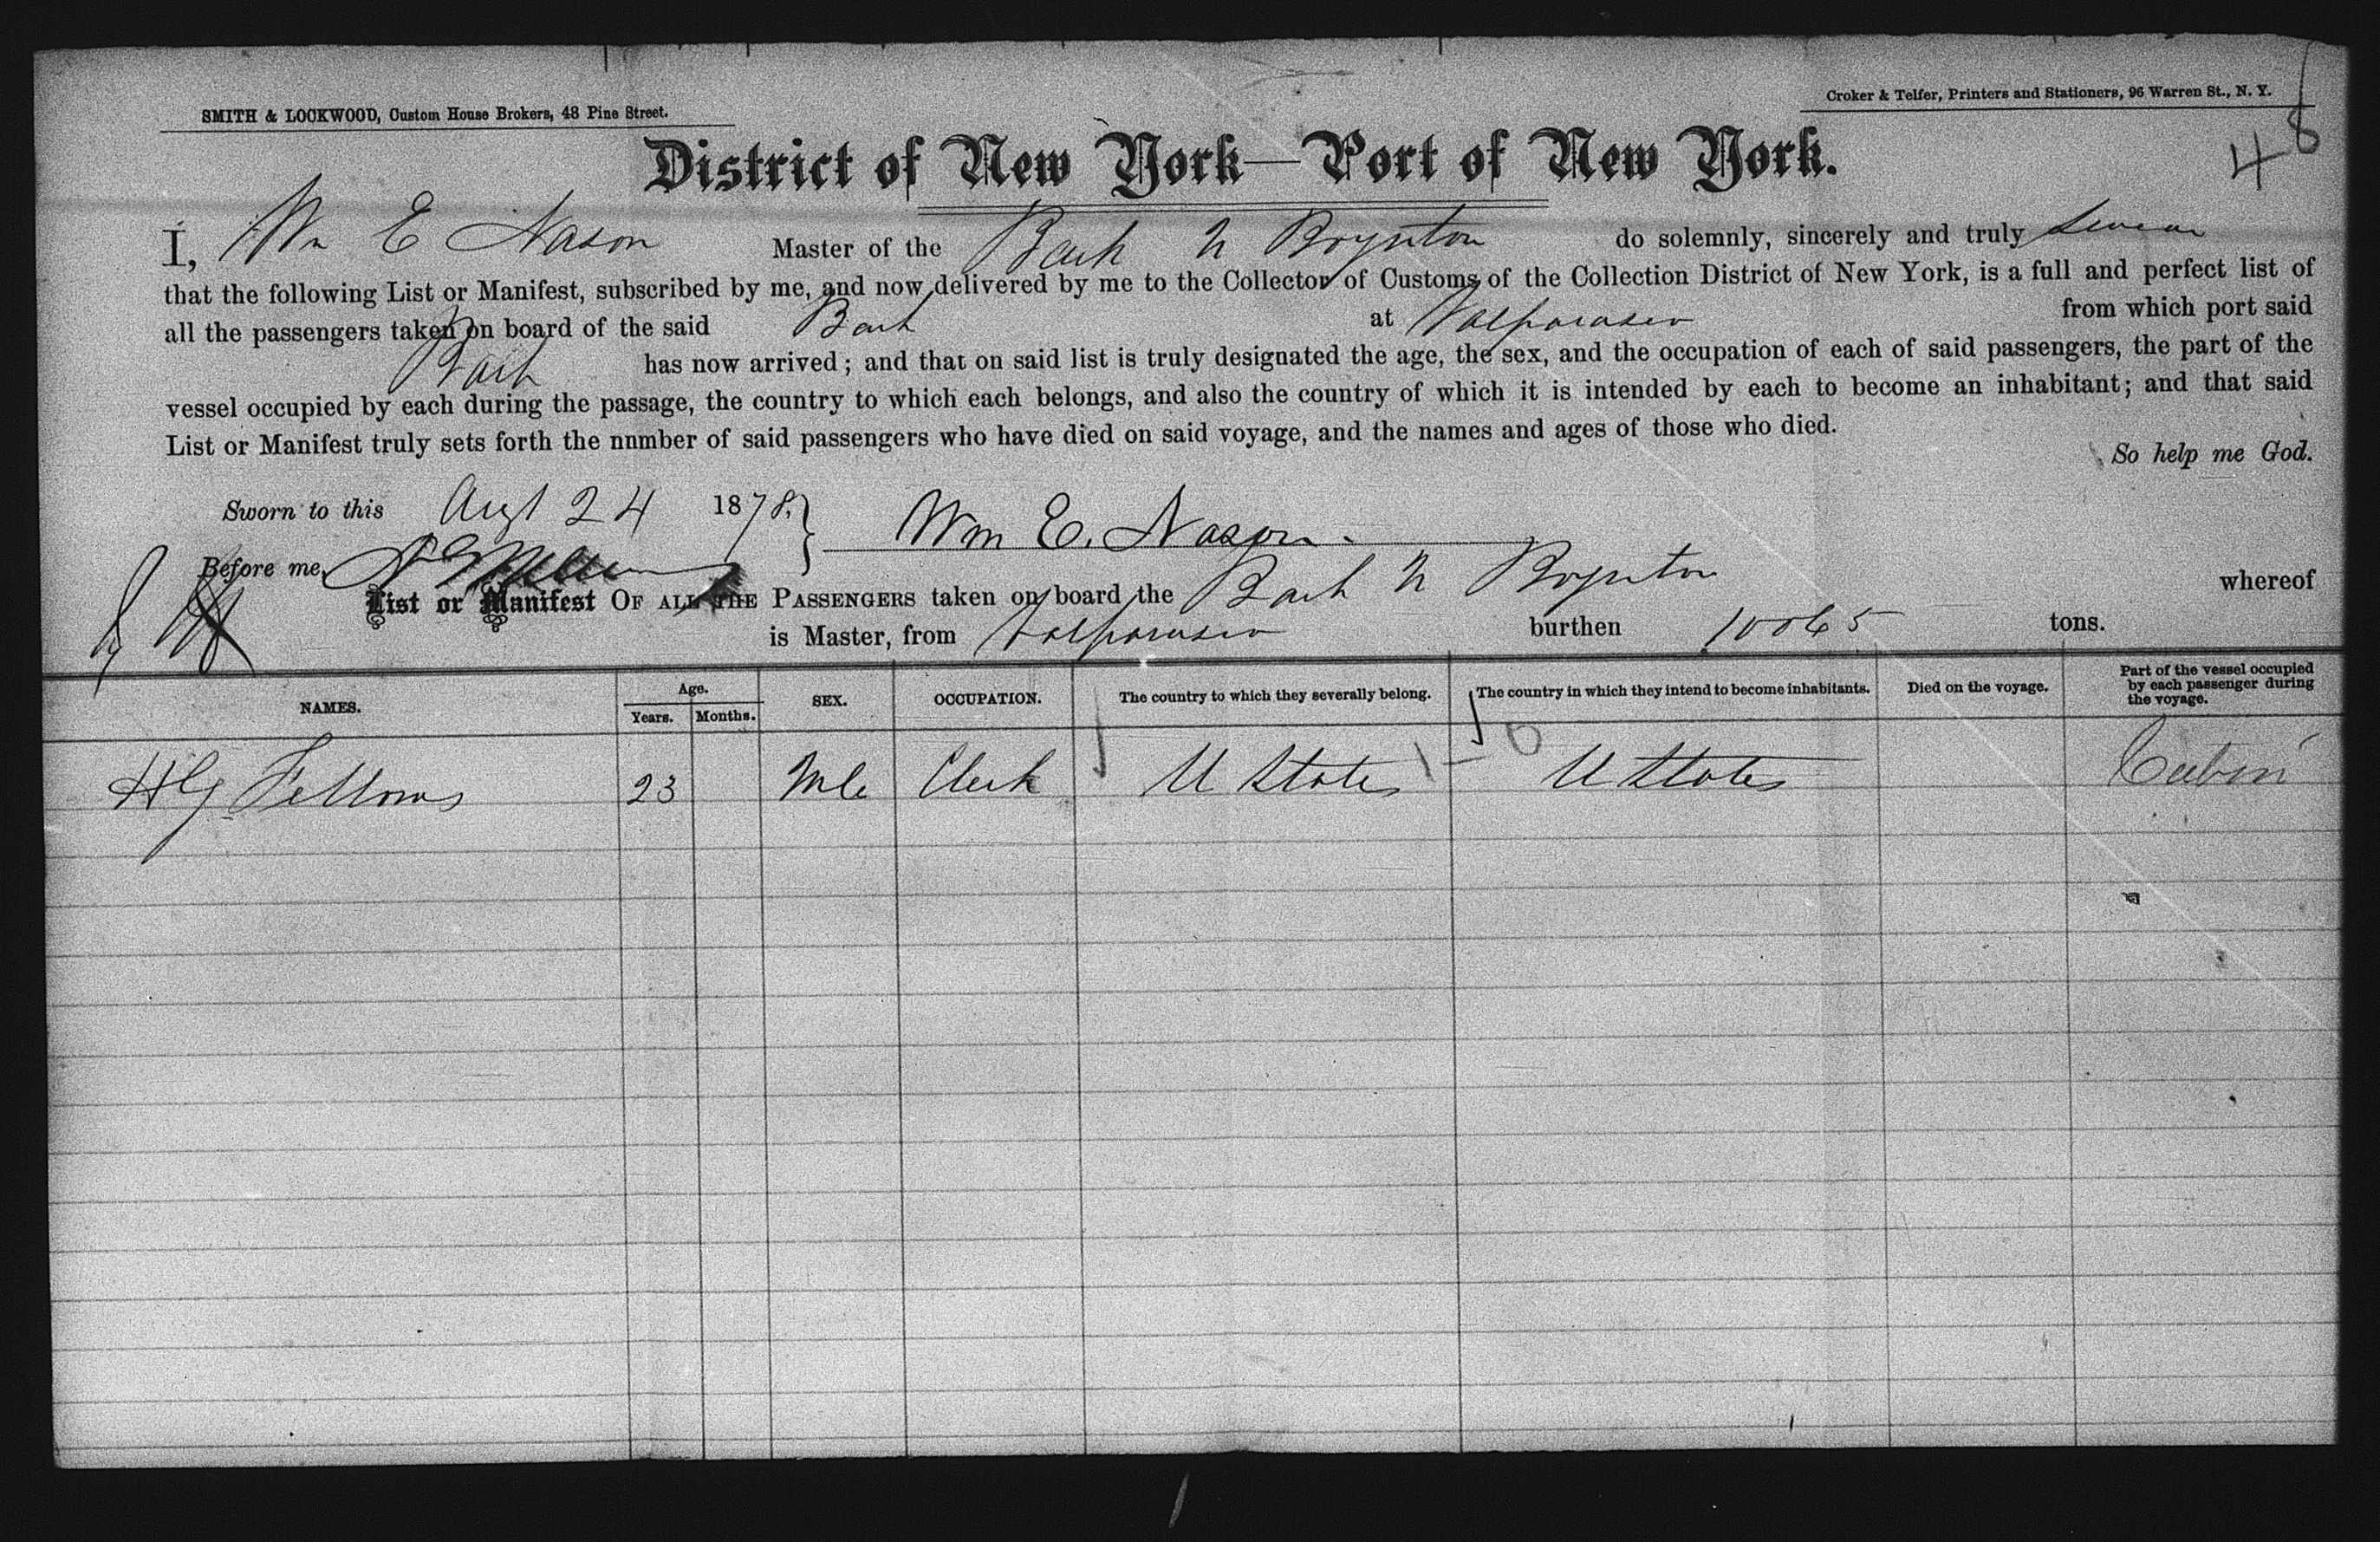 SMITH & LOCKWOOD, Custom House Brokers, 48 Pine Street.
Croker & Telfer, Printers and Stationers, 96 Warren St., N. Y.
48
District of New York—Port of New York.
I, Wm E Nason Master of the Bark N Boynton do solemnly, sincerely and truly swear
that the following List or Manifest, subscribed by me, and now delivered by me to the Collector of Customs of the Collection District of New York, is a full and perfect list of
all the passengers taken on board of the said Bark at Valparaiso from which port said
Bark has now arrived; and that on said list is truly designated the age, the sex, and the occupation of each of said passengers, the part of the
vessel occupied by each during the passage, the country to which each belongs, and also the country of which it is intended by each to become an inhabitant; and that said
List or Manifest truly sets forth the nnmber of said passengers who have died on said voyage, and the names and ages of those who died.
So help me God.
Sworn to this Augt 24 1878. Wm E. Nason.
Before me,
List or Manifest OF ALL THE PASSENGERS taken on board the Bark N Boynton whereof
is Master, from Valparaiso burthen 10065 tons.
NAMES. Age. Years. Months. SEX. OCCUPATION. The country to which they severally belong. The country in which they intend to become inhabitants. Died on the voyage. Part of the vessel occupied by each passenger during the voyage.
HG Fellows 23 Mle Clerk U States U States Cabin